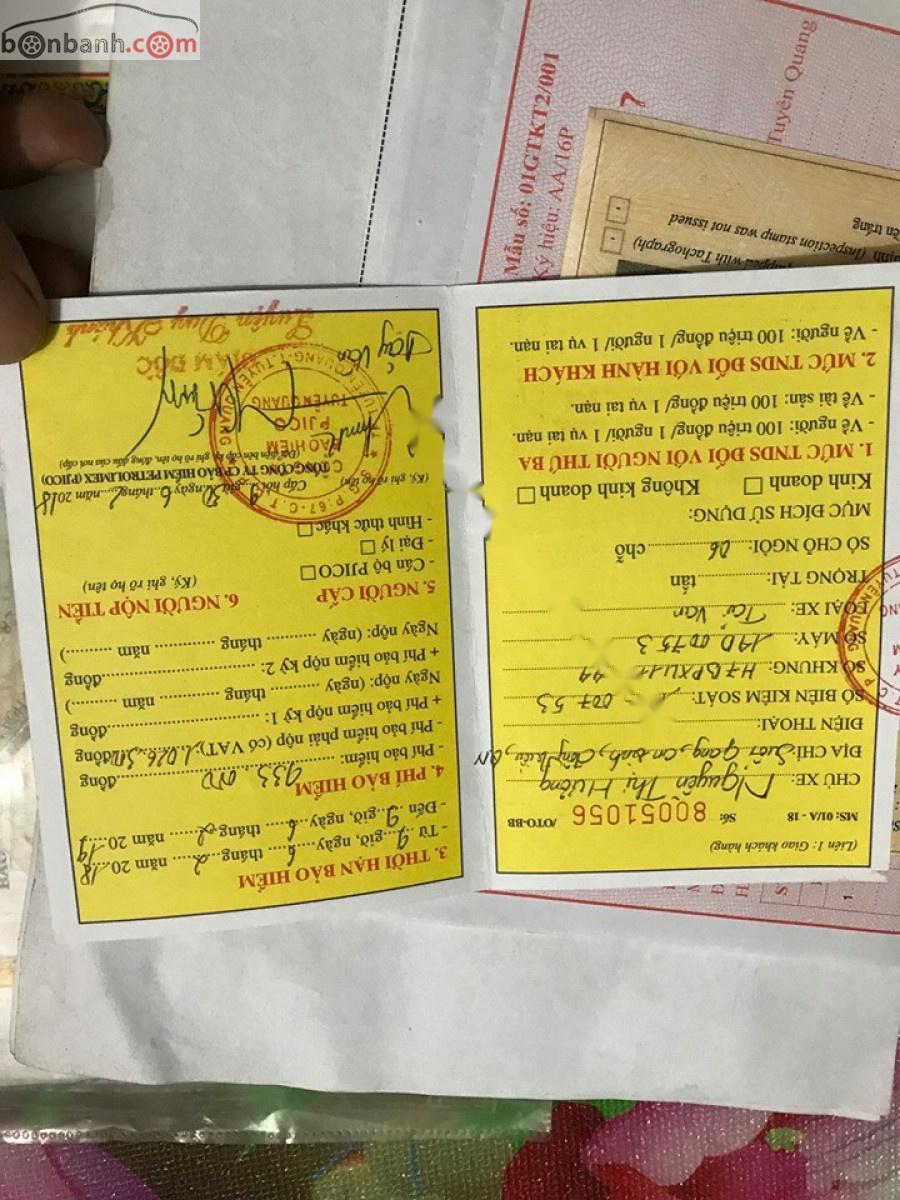 bonbanh.com
Mẫu số: 01GTKT2/001
Ký hiệu: AA/16P
Tuyên Quang
(Inspection stamp was not issued
with Tachograph)
(Liên 1: Giao khách hàng)
MS: 01/1A - 18 Số: 80051056 /OTO-BB
CHỦ XE: Nguyễn Thị Hường
ĐỊA CHỈ:
ĐIỆN THOẠI:
SỐ BIỂN KIỂM SOÁT: 007 53
SỐ KHUNG:
SỐ MÁY:
LOẠI XE: Tải Van
TRỌNG TẢI: tấn
SỐ CHỖ NGỒI: 06 chỗ
MỤC ĐÍCH SỬ DỤNG:
Kinh doanh □ Không kinh doanh □
1. MỨC TNDS ĐỐI VỚI NGƯỜI THỨ BA
- Về người: 100 triệu đồng/ 1 người/ 1 vụ tai nạn.
- Về tài sản: 100 triệu đồng/ 1 vụ tai nạn.
2. MỨC TNDS ĐỐI VỚI HÀNH KHÁCH
- Về người: 100 triệu đồng/ 1 người/ 1 vụ tai nạn.
3. THỜI HẠN BẢO HIỂM
- Từ 9 giờ, ngày 6 tháng 2 năm 20 18
- Đến 9 giờ, ngày 6 tháng 2 năm 20 19
4. PHÍ BẢO HIỂM
- Phí bảo hiểm: 933 000 đồng
- Phí bảo hiểm phải nộp (có VAT): 1.026.300 đồng
+ Phí bảo hiểm nộp kỳ 1: đồng
Ngày nộp: (ngày tháng năm )
+ Phí bảo hiểm nộp kỳ 2: đồng
Ngày nộp: (ngày tháng năm )
5. NGƯỜI CẤP 6. NGƯỜI NỘP TIỀN
- Cán bộ PJICO □ (Ký, ghi rõ họ tên)
- Đại lý □
- Hình thức khác □
Cấp hồi 9 giờ ngày 6 tháng 2 năm 2018
(Ký, ghi rõ họ tên) TỔNG CÔNG TY CP BẢO HIỂM PETROLIMEX (PJICO)
BẢO HIỂM
PJICO
TUYÊN QUANG
GIÁM ĐỐC
Duy Khánh